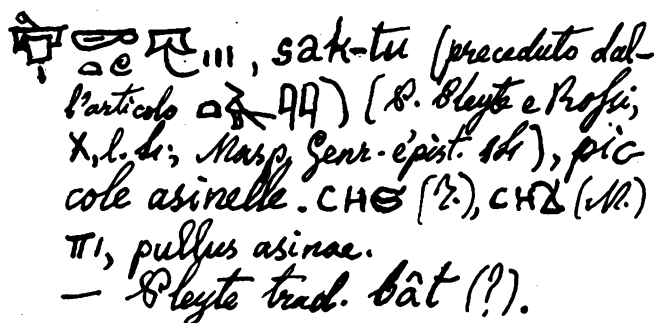 , sak-tu (preceduto dal-
l'articolo ) (P. Pleyte e Rossi,
X, l. 4; Masp. Genr. épist. 14), pic
cole asinelle. CHϬ (T.), CHϪ (M.)
ΠΙ, pullus asinae.
— Pleyte trad. bât (?).